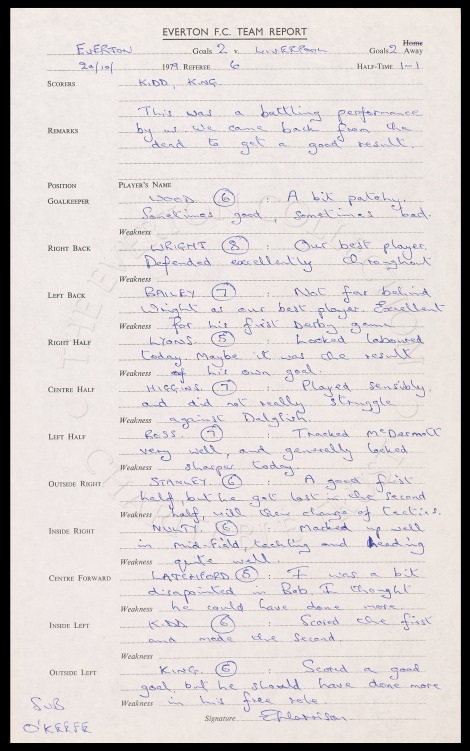 EVERTON F.C. TEAM REPORT
EVERTON Goals 2 v. LIVERPOOL Goals 2 Home Away
20/10/ 1979 REFEREE 6 HALF-TIME 1-1
SCORERS KIDD, KING.
This was a battling performance
REMARKS by us. We came back from the
dead to get a good result.
POSITION PLAYER'S NAME
GOALKEEPER WOOD. (6) : A bit patchy.
Sometimes good, sometimes bad.
Weakness
RIGHT BACK WRIGHT (8) : Our best player.
Defended excellently throughout
Weakness
LEFT BACK BAILEY (7) : Not far behind
Wright as our best player. Excellent
Weakness for his first Derby game
RIGHT HALF LYONS. (5) : Looked laboured
today. Maybe it was the result
Weakness of his own goal.
CENTRE HALF HIGGINS. (7) : Played sensibly.
and did not really struggle
Weakness against Dalglish.
LEFT HALF ROSS. (7) : Tracked McDermott
very well, and generally looked
Weakness sharper today.
OUTSIDE RIGHT STANLEY. (6) : A good first
half, but he got lost in the second
Weakness half, with their change of tactics.
INSIDE RIGHT NULTY. (6) : Marked up well
in mid-field, tackling and heading
Weakness quite well.
CENTRE FORWARD LATCHFORD (5) : I was a bit
disapointed in Bob. I thought
Weakness he could have done more
INSIDE LEFT KIDD. (6) : Scored the first
and made the second.
Weakness
OUTSIDE LEFT KING. (6) : Scored a good
goal, but he should have done more
Weakness in his free role.
SUB
O'KEEFE
Signature C Harrison